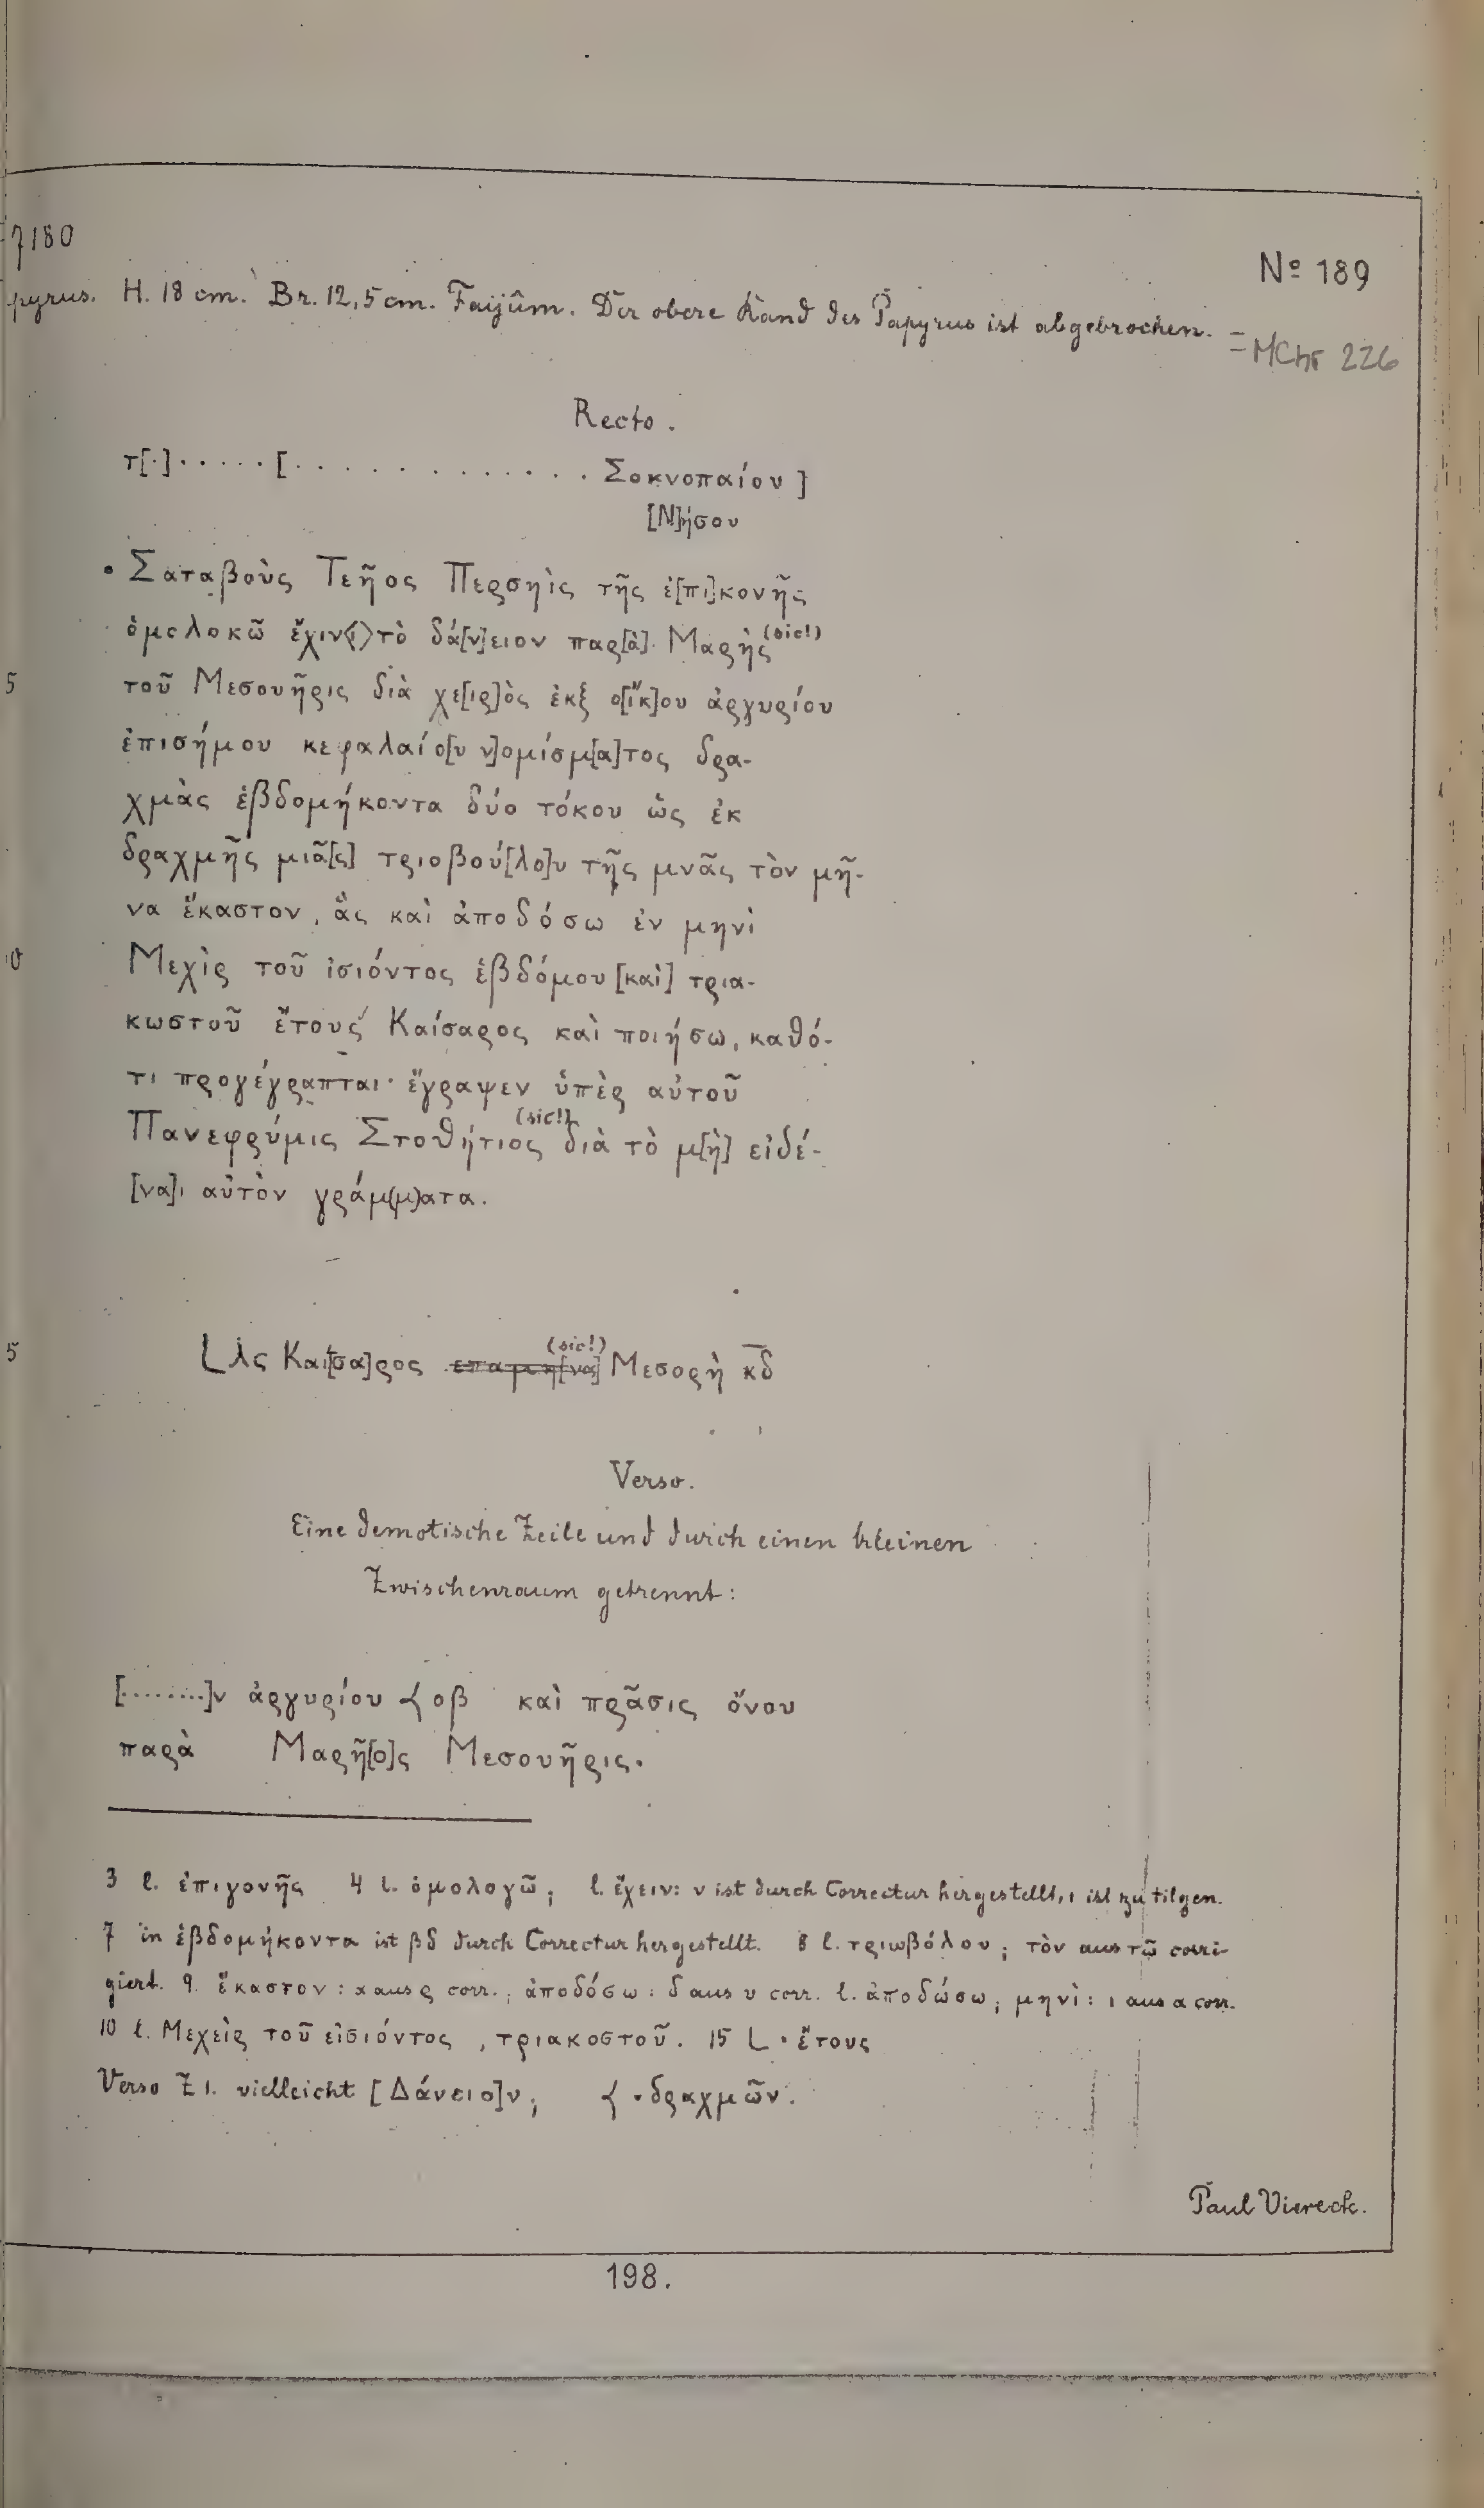 7180
Nº 189
pyrus. H. 18 cm. Br. 12,5 cm. Faijûm. Der obere Rand des Papyrus ist abgebrochen.
= MChr 226
Recto.
τ[·]·····[············ Σοκνοπαίου]
[Ν]ήσου
Σαταβοὺς Τεῆος Περσηὶς τῆς ἐ[πι]κονῆς
ὁμολοκῶ ἔχιν⟨ι⟩ τὸ δά[ν]ειον παρ[ὰ] Μαρὴς (sic!)
5 τοῦ Μεσουῆρις διὰ χε[ιρ]ὸς ἐκξ ο[ἴκ]ου ἀργυρίου
ἐπισήμου κεφαλαίο[υ ν]ομίσμ[α]τος δρα-
χμὰς ἑβδομήκοντα δύο τόκου ὡς ἐκ
δραχμῆς μιᾶ[ς] τριοβού[λο]υ τῆς μνᾶς τὸν μῆ-
να ἕκαστον, ἃς καὶ ἀποδόσω ἐν μηνὶ
10 Μεχὶρ τοῦ ἰσιόντος ἑβδόμου [καὶ] τρια-
κωστοῦ ἔτους Καίσαρος καὶ ποιήσω, καθό-
τι προγέγραπται· ἔγραψεν ὑπὲρ αὐτοῦ
Πανεφρύμις Στοθήτιος (sic!) διὰ τὸ μ[ὴ] εἰδέ-
[να]ι αὐτὸν γράμ(μ)ατα.
5 L λς Καί[σα]ρος επαμη[να] (sic!) Μεσορὴ κ̅δ̅
Verso.
Eine demotische Zeile und durch einen kleinen
Zwischenraum getrennt:
[········]ν ἀργυρίου 𐅻 οβ καὶ πρᾶσις ὄνου
παρὰ Μαρῆ[ο]ς Μεσουῆρις.
3 l. ἐπιγονῆς 4 l. ὁμολογῶ; l. ἔχειν: ν ist durch Correctur hergestellt, ι ist zu tilgen.
7 in ἑβδομήκοντα ist βδ durch Correctur hergestellt. 8 l. τριωβόλου; τὸν aus τῶ corri-
giert. 9. ἕκαστον: κ aus ς corr.; ἀποδόσω: δ aus υ corr. l. ἀποδώσω; μηνὶ: ι aus α corr.
10 l. Μεχεὶρ τοῦ εἰσιόντος, τριακοστοῦ. 15 L · ἔτους
Verso Z 1. vielleicht [Δάνειο]ν; 𐅻 · δραχμῶν.
Paul Viereck.
198.